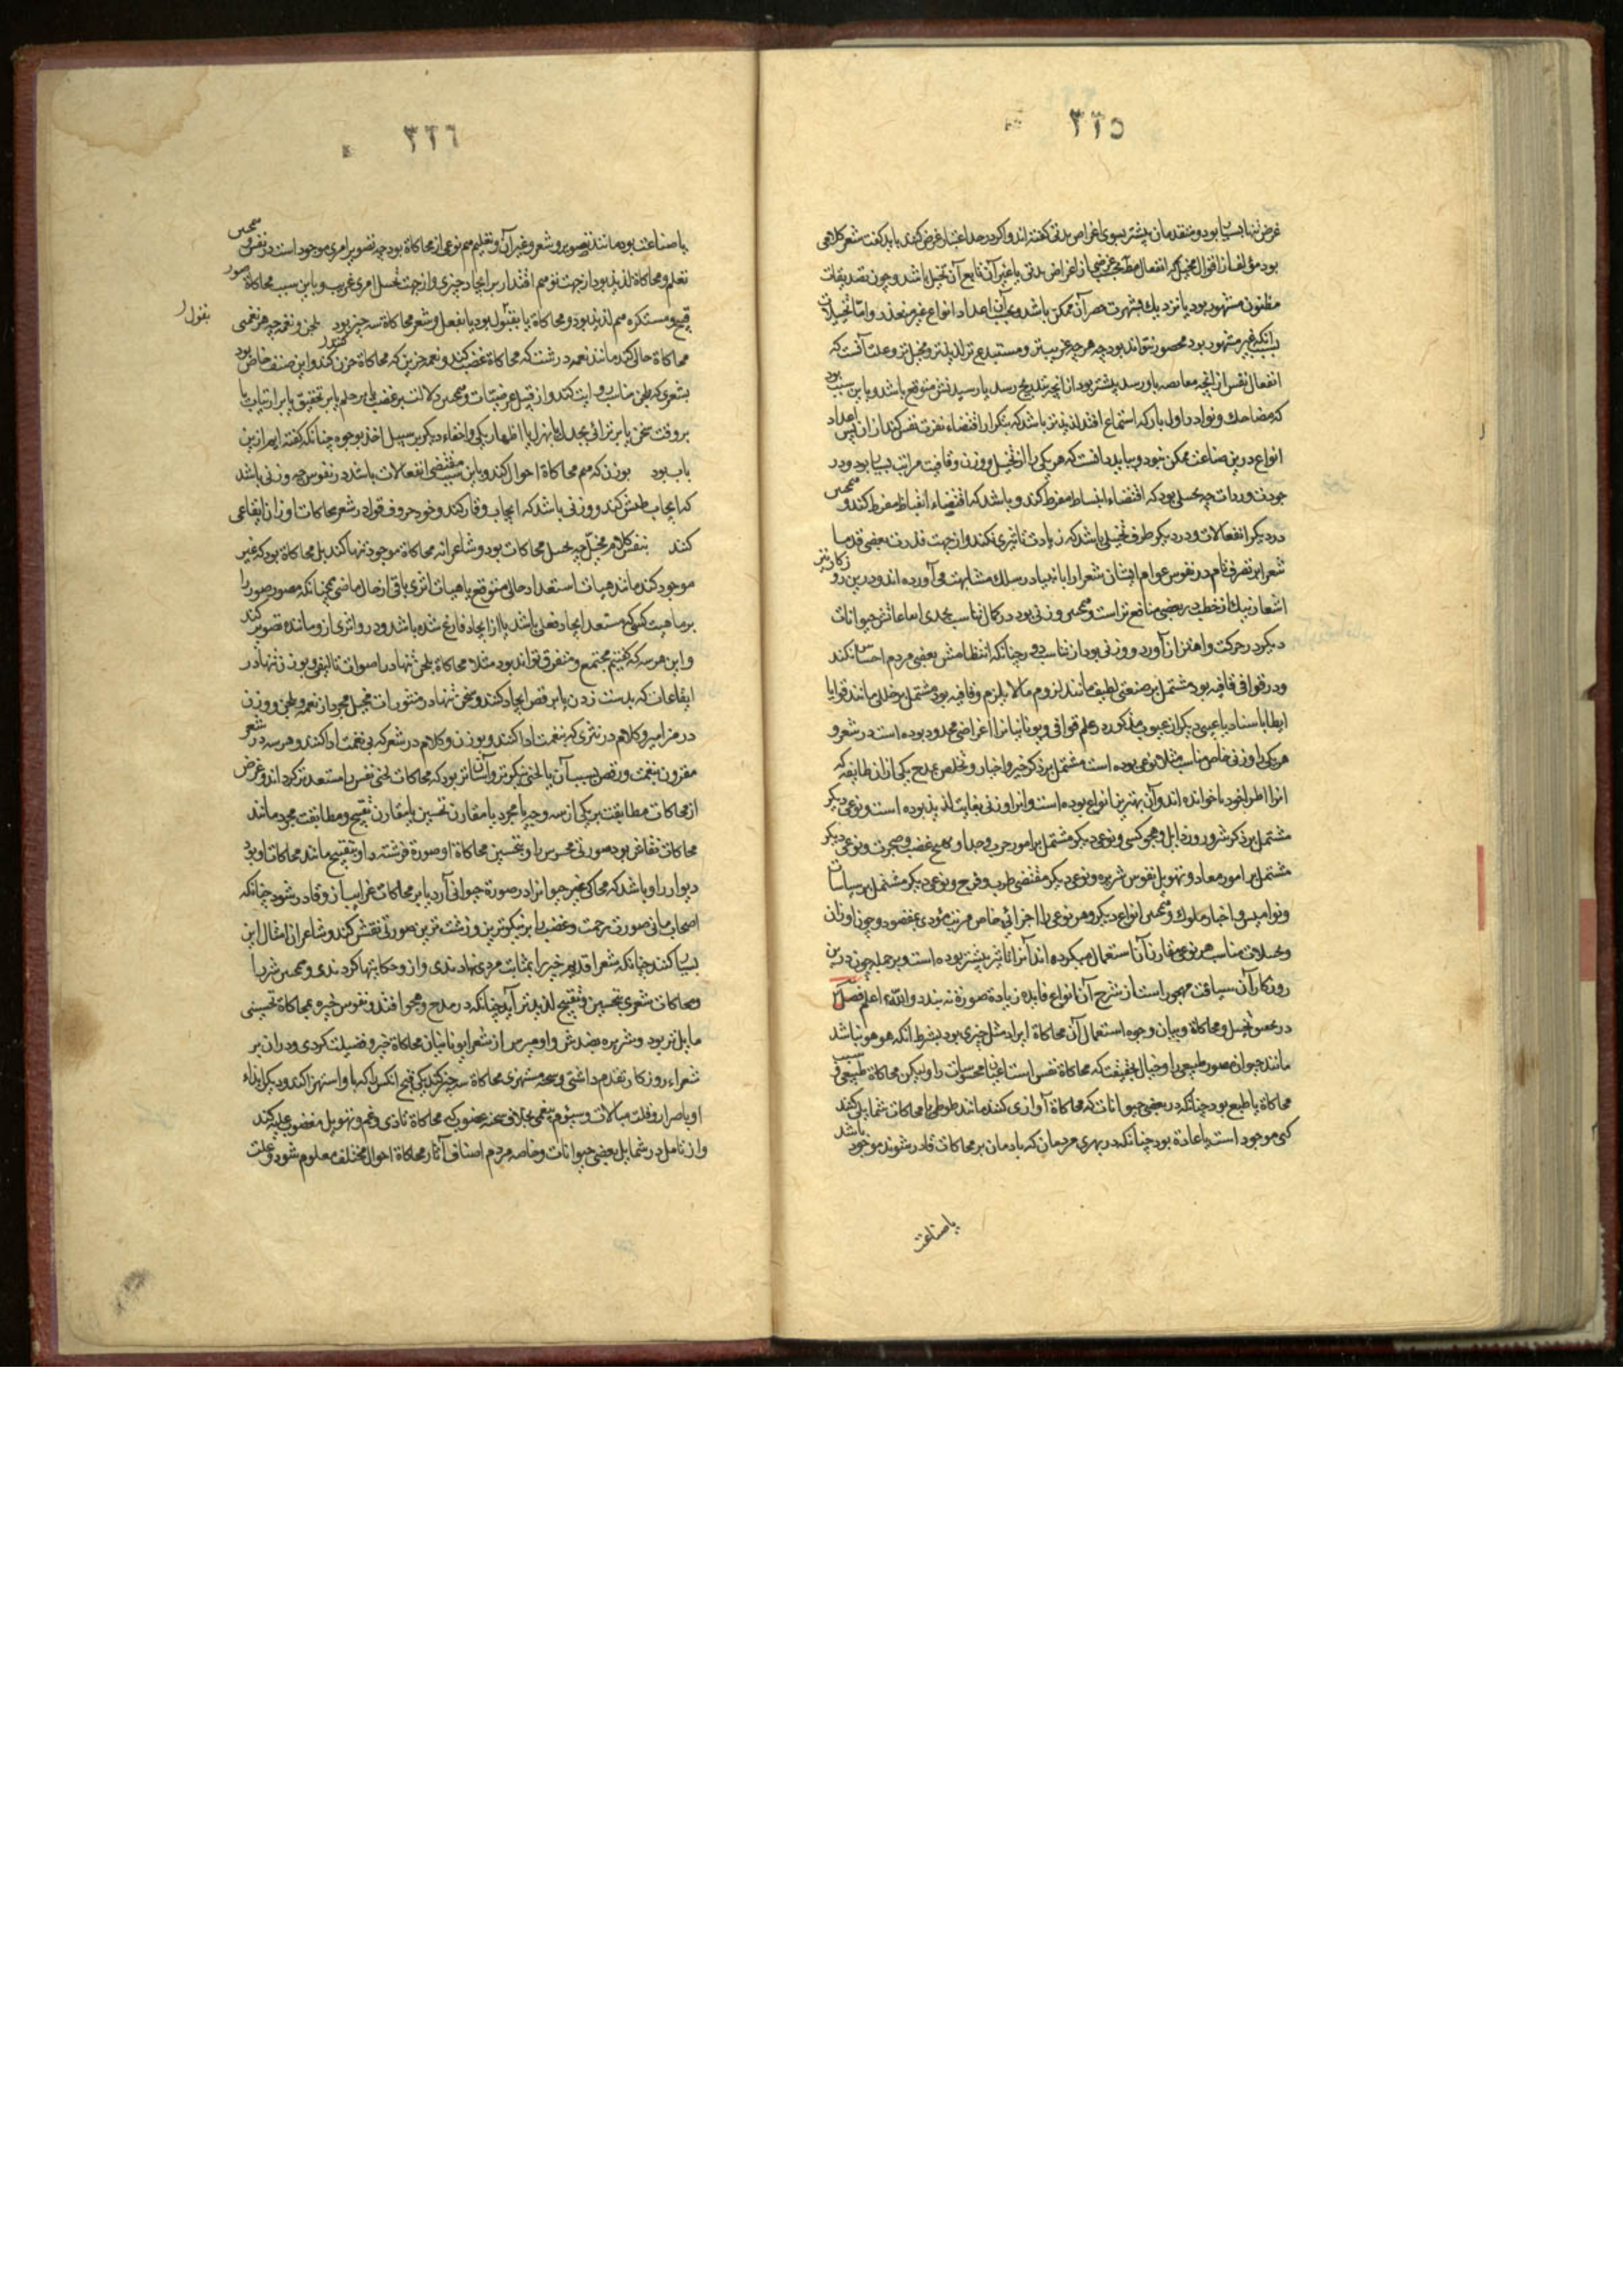 ٣٢٥
غرض تنها بسیار بود و متقدمان بیشتر بسوی اغراض مدنی گفته‌اند و اگر در حد اعتبار غرض کنند باید گفت شعر کلامی
بود مؤلف از اقوال مخیل که انفعال مطلوب بحسب غرضی از اغراض مدنی یا غیر آن تابع آن تخیل باشد و چون تصدیقات
مظنون مشهور بود یا نزدیک بشهرت حصر آن ممکن باشد و بحسب آن اعداد انواع غیر متعذر و اما تخیلات
بسبب آنکه غیر مشهور بود محصور نتواند بود چه هرچه غریب‌تر و مستبدع‌تر و لذیذتر و مخیل‌تر و علت آنست که
انفعال نفس از آنچه مغافصه باو رسد بیشتر بود از آنچه بتدریج رسد یا رسیدنش متوقع باشد و باین سبب بود
که مضاحک و نوادر اول بار که استماع افتد لذیذتر باشد که بتکرار اقتضاء نفرت نفس کند از آن پس اعداد
انواع درین صناعت ممکن نبود و بباید دانست که هر یکی را از تخیل و وزن و قافیت مراتب بسیار بود در
جودت و رداءت چه تخیلی بود که اقتضاء انبساط مفرط کند و باشد که اقتضاء انقباض مفرط کند و همچنین
در دیگر انفعالات و در دیگر طرف تخیلی باشد که زیادت تأثیری نکند و از جهت قدرت بعضی قدما
شعرا بر تصرف تام در نفوس عوام ایشان شعرا را با انبیا در سلک مشابهت می‌آورده‌اند و درین روزگار نیز
اشعار نیک از خطب در بعضی منافع‌تر است و همچنین وزنی بود در کمال تناسب بحدی که سماعش حیوانات
دیگر در حرکت و اهتزاز آورد و وزنی بود از تناسب دور چنانکه انتظامش بعضی مردم احساس نکنند
و در قوافی قافیه بود مشتمل بر صنعتی لطیف مانند لزوم مالایلزم و قافیه بود مشتمل بر خللی مانند قوایا
ایطا یا سناد یا عیبی دیگر از عیوب مذکور در علم قوافی و یونانیان را اغراضی محدود بوده است در شعر و
هر یکی را وزنی خاص مناسب مثلا نوعی بوده است مشتمل بر ذکر خیر و اخیار و تخلص بمدح یکی از آن طایفه که
آنرا اطراغوذیا خوانده‌اند و آن بهترین انواع بوده است و آنرا وزنی بغایت لذیذ بوده است و نوعی دیگر
مشتمل بر ذکر شرور و رذایل و هجو کسی و نوعی دیگر مشتمل بر امور حرب و جدال و تهییج غضب و ضجرت و نوعی دیگر
مشتمل بر امور معاد و تهویل نفوس شریره و نوعی دیگر مقتضی طرب و فرح و نوعی دیگر مشتمل بر سیاسات
و نوامیس و اخبار ملوک و همچنین انواع دیگر و هر نوعی را اجزائی خاص مرتب مؤدی بمقصود و چون اوزان
و تخیلات مناسب هر نوعی مقارن آن استعمال میکرده‌اند آنرا تأثیر بیشتر بوده است و بر جمله چون درین
روزگار آن سیاقت مهجور است از شرح آن انواع فایده زیادة صورة نه بندد والله اعلم فصل
در تحقیق تخیل و محاکاة و بیان وجوه استعمال آن محاکاة ایراد مثل چیزی بود بشرط آنکه هو هو نباشد
مانند حیوان مصور طبیعی را و خیال بحقیقت که محاکاة نفس است اعیان محسوسات را و لیکن محاکاة طبیعی و سبب
محاکاة یا طبع بود چنانکه در بعضی حیوانات که محاکاة آوازی کنند مانند طوطی یا محاکات شمایلی کنند
کپی موجود است یا عادة بود چنانکه در بهری مردمان که بادمان بر محاکات قادر شوند موجود باشد
یا صناعت
٣٢٦
یا صناعت بود مانند تصویر و شعر و غیر آن و تعلیم هم نوعی از محاکاة بود چه تصویر امری موجود است در نفس و همچنین
تعلم و محاکاة لذیذ بود از جهت توهم اقتدار بر ایجاد چیزی و از جهت تخیل امری غریب و باین سبب محاکاة صور
قبیح و مستکره هم لذیذ بود و محاکاة یا بقول بود یا بفعل و شعر محاکاة سه چیز بود بلحن و نغمه چه هر نغمتی
بقول
محاکاة حالی کند مانند نغمه درشت که محاکاة غضب کند و نغمه حزین که محاکاة حزن کند و این صنف خاص بود
بشعری که بلحن مناسب روایت کنند و از قبیل عرضیات و همچنین دلالت بر غضب یا بر حلم یا بر تحقیق یا بر ارتیاب یا
باب بود بوزن که هم محاکاة احوال کند و باین سبب مقتضی انفعالات باشد در نفوس چه وزنی باشد
که ایجاب طیش کند و وزنی باشد که ایجاب وقار کند و خود حروف قول در شعر محاکات اوزان ایقاعی
کند بنفس کلام مخیل چه تخیل محاکات بود و شاعر نه محاکاة موجود تنها کند بل محاکاة بود که غیر
موجود کند مانند هیات استعداد حالی متوقع یا هیات اثری باقی از حال ماضی همچنانکه مصور صورا
بر ماهیت کسی که مستعد ایجاد فعلی باشد یا از ایجاد فارغ شده باشد و در و اثری ازو مانده تصویر کند
و این هر سه که گفتیم مجتمع و متفرق تواند بود مثلا محاکاة بلحن تنها در اصوات تألیفی و بوزن تنها در
ایقاعات که بدست زدن یا برقص ایجاد کنند و بسخن تنها در منثورات مخیل مجرد از نغمه و بلحن و وزن
در مزامیر و کلام در نثری که بنغمت ادا کنند و بوزن و کلام در شعر که بی نغمت ادا کنند و هر سه در شعر
مقرون بنغمت و رقص بسبب آن با لحن نیکوتر و آسان‌تر بود که محاکات لحنی نفس را مستعدتر گرداند و غرض
از محاکات مطابقت بر یکی از سه وجه یا مجرد یا مقارن تحسین یا مقارن تقبیح و مطابقت مجرد مانند
محاکات نقاش بود صورتی محسوس را و تحسین محاکاة او صورة فرشته را و تقبیح مانند محاکات او بود
دیو را و باشد که محاکی غیر حیوانرا در صورة حیوانی آرد یا بر محاکات غرایب آن قادر شود چنانکه
اصحاب مانی صورت رحمت و غضب را بر نیکوترین و زشت‌ترین صورتی نقش کنند و شاعر از امثال این
بسیار کنند چنانکه شعرا قدیم خیر را بمثابت مردی نهادندی و ازو حکایتها کردندی و همچنین شر را
و محاکات شعری بتحسین و تقبیح لذیذتر آید چنانکه در مدح و هجو افتد و نفوس خیره بمحاکاة تحسینی
مایل‌تر بود و شریره بضدش و اومیرس از شعرا یونانیان محاکاة خیر و فضیلت کردی و در آن بر
شعراء روزگار تقدم داشتی و سخنه مشهری محاکاة سه چیز کند یکی قبح آنکس را که باو استهزا کند و دیگر ایذاء
او باصرار و قلت مبالات و سیوم بیغمی بخلاف سحنه غضوب که محاکاة تاذی و غم و تهویل مغضوب علیه کند
و از تامل در شمایل بعضی حیوانات و خاصه مردم اصناف آثار محاکاة احوال مختلف معلوم شود و علت